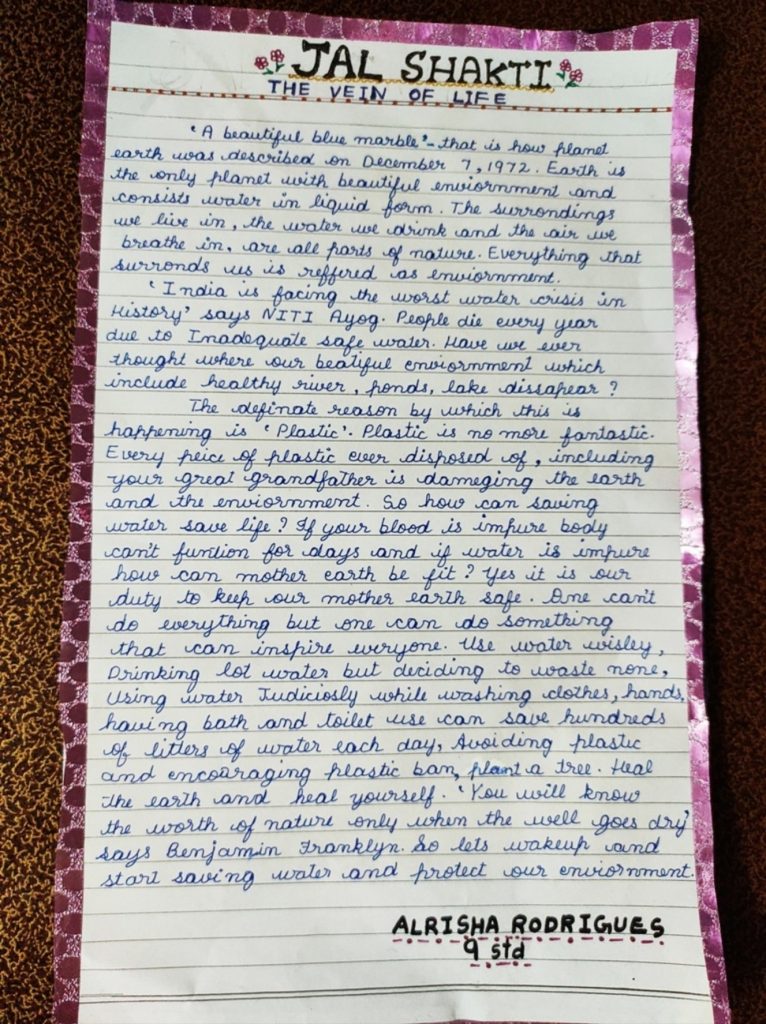 JAL SHAKTI
THE VEIN OF LIFE
'A beautiful blue marble'- that is how planet
earth was described on December 7, 1972. Earth is
the only planet with beautiful enviornment and
consists water in liquid form. The surrondings
we live in, the water we drink and the air we
breathe in, are all parts of nature. Everything that
surronds us is reffered as enviornment.
'India is facing the worst water crisis in
History' says NITI Ayog. People die every year
due to Inadequate safe water. Have we ever
thought where our beatiful enviornment which
include healthy river, ponds, lake dissapear ?
The definate reason by which this is
happening is 'Plastic'. Plastic is no more fantastic.
Every peice of plastic ever disposed of, including
your great grandfather is dameging the earth
and the enviornment. So how can saving
water save life ? If your blood is impure body
can't funtion for days and if water is impure
how can mother earth be fit ? Yes it is our
duty to keep our mother earth safe. One can't
do everything but one can do something
that can inspire everyone. Use water wisley,
Drinking lot water but deciding to waste none,
Using water Judiciosly while washing clothes, hands,
having bath and toilet use can save hundreds
of litters of water each day, Avoiding plastic
and encoaraging plastic ban, plant a tree. Heal
the earth and heal yourself. 'You will know
the worth of nature only when the well goes dry'
says Benjamin Franklyn. So lets wakeup and
start saving water and protect our enviornment.
ALRISHA RODRIGUES
9 std